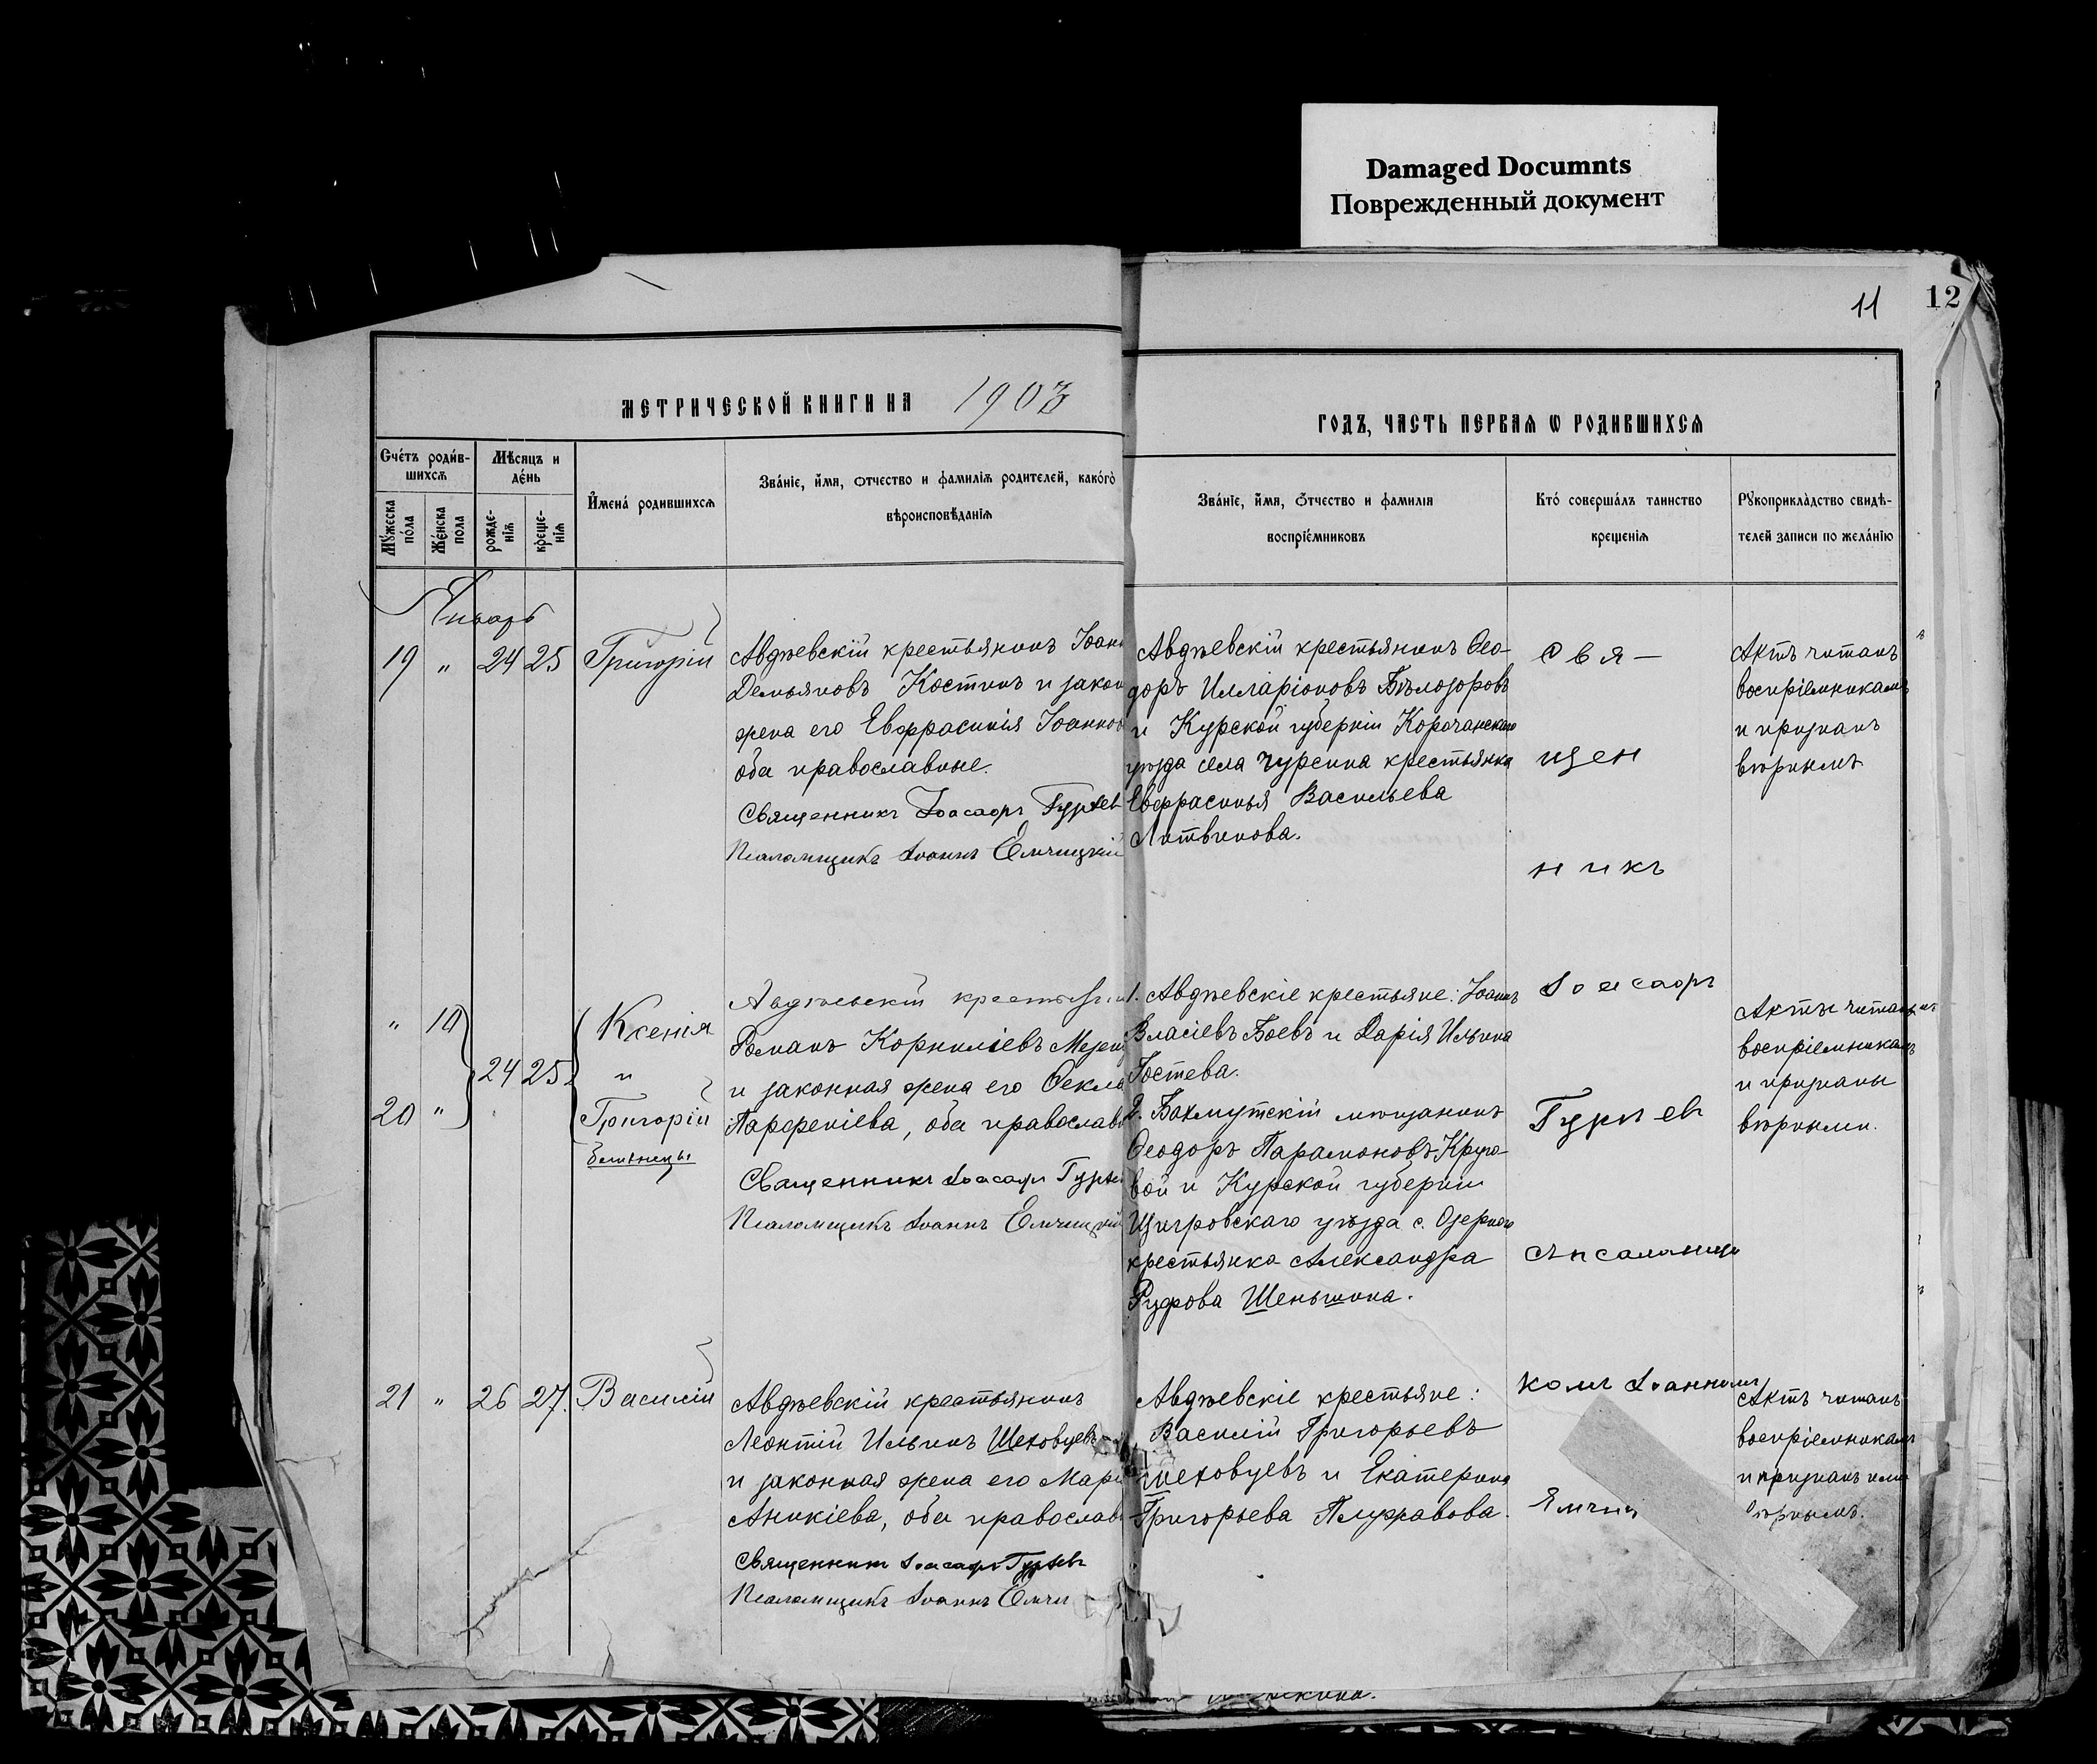 Damaged Documnts
Поврежденный документ
11
12
МЕТРИЧЕСКОЙ КНИГИ НА 1903
ГОДЪ, ЧАСТЬ ПЕРВАѦ Ѡ РОДИВШИХСѦ
Счéтъ родúв-
шихсѧ
Мѣсяцъ и
дéнь
Мꙋ́жеска
пóла
Жéнска
пола
рожде-
нїѧ
креще-
нїѧ
И҆́мена́ родившихсѧ
Звáнїе, и҆́мя, ѻтчество и фамилїѧ родителей, какóгѡ
вѣроисповѣ́данїѧ
Звáнїе, и҆́мя, ѻтчество и фамилїя
воспрїéмниковъ
Ктó совершáлъ таинство
крещенїѧ
Рꙋкоприклàдство свидѣ́-
телей записи по желáнїю
Январь
19 " 24 25 Григорій
Авдѣевскій крестьянинъ Іоанн
Демьяновъ Костинъ и закон
жена его Евфрасинія Іоаннов
оба православные.
Священникъ Іоасафъ Гурьевъ
Псаломщикъ Іоаннъ Емчицкій
Авдѣевскій крестьянинъ Ѳео-
доръ Илларіоновъ Бѣлозоровъ
и Курской губерніи Корочанскаго
уѣзда села Чурсина крестьянка
Евфрасинья Васильева
Литвинова.
Свя-
щен
никъ
Актъ читанъ
воспріемникамъ
и признанъ
вѣрнымъ
" 10
20 "
24 25
Ксенія
и
Григорій
близнецы
Авдѣевскій крестьянин
Романъ Корниліевъ Мезен
и законная жена его Ѳекла
Парфеніева, оба православн
Священникъ Іоасафъ Гурьев
Псаломщикъ Іоаннъ Емчицкій
1. Авдѣевскіе крестьяне: Іоаннъ
Власіевъ Боевъ и Дарія Ильина
Гостева.
2. Бахмутскій мѣщанинъ
Ѳеодоръ Парамоновъ Круго-
вой и Курской губерніи
Щигровскаго уѣзда с. Озерного
крестьянка Александра
Руфова Шеньшина.
Іоасафъ
Гурьев
съ псаломщи
Акты читаны
воспріемникамъ
и признаны
вѣрными.
21 " 26 27. Василій
Авдѣевскій крестьянинъ
Леонтій Ильинъ Шеховцевъ
и законная жена его Мари
Аникіева, оба православн
Священникъ Іоасафъ Гурьевъ
Псаломщикъ Іоаннъ Емчи
Авдѣевскіе крестьяне:
Василій Григорьевъ
Шеховцевъ и Екатерина
Григорьева
комъ Іоанномъ
Ямчиц
Актъ читанъ
воспріемникамъ
и признанъ ими
вѣрнымъ.